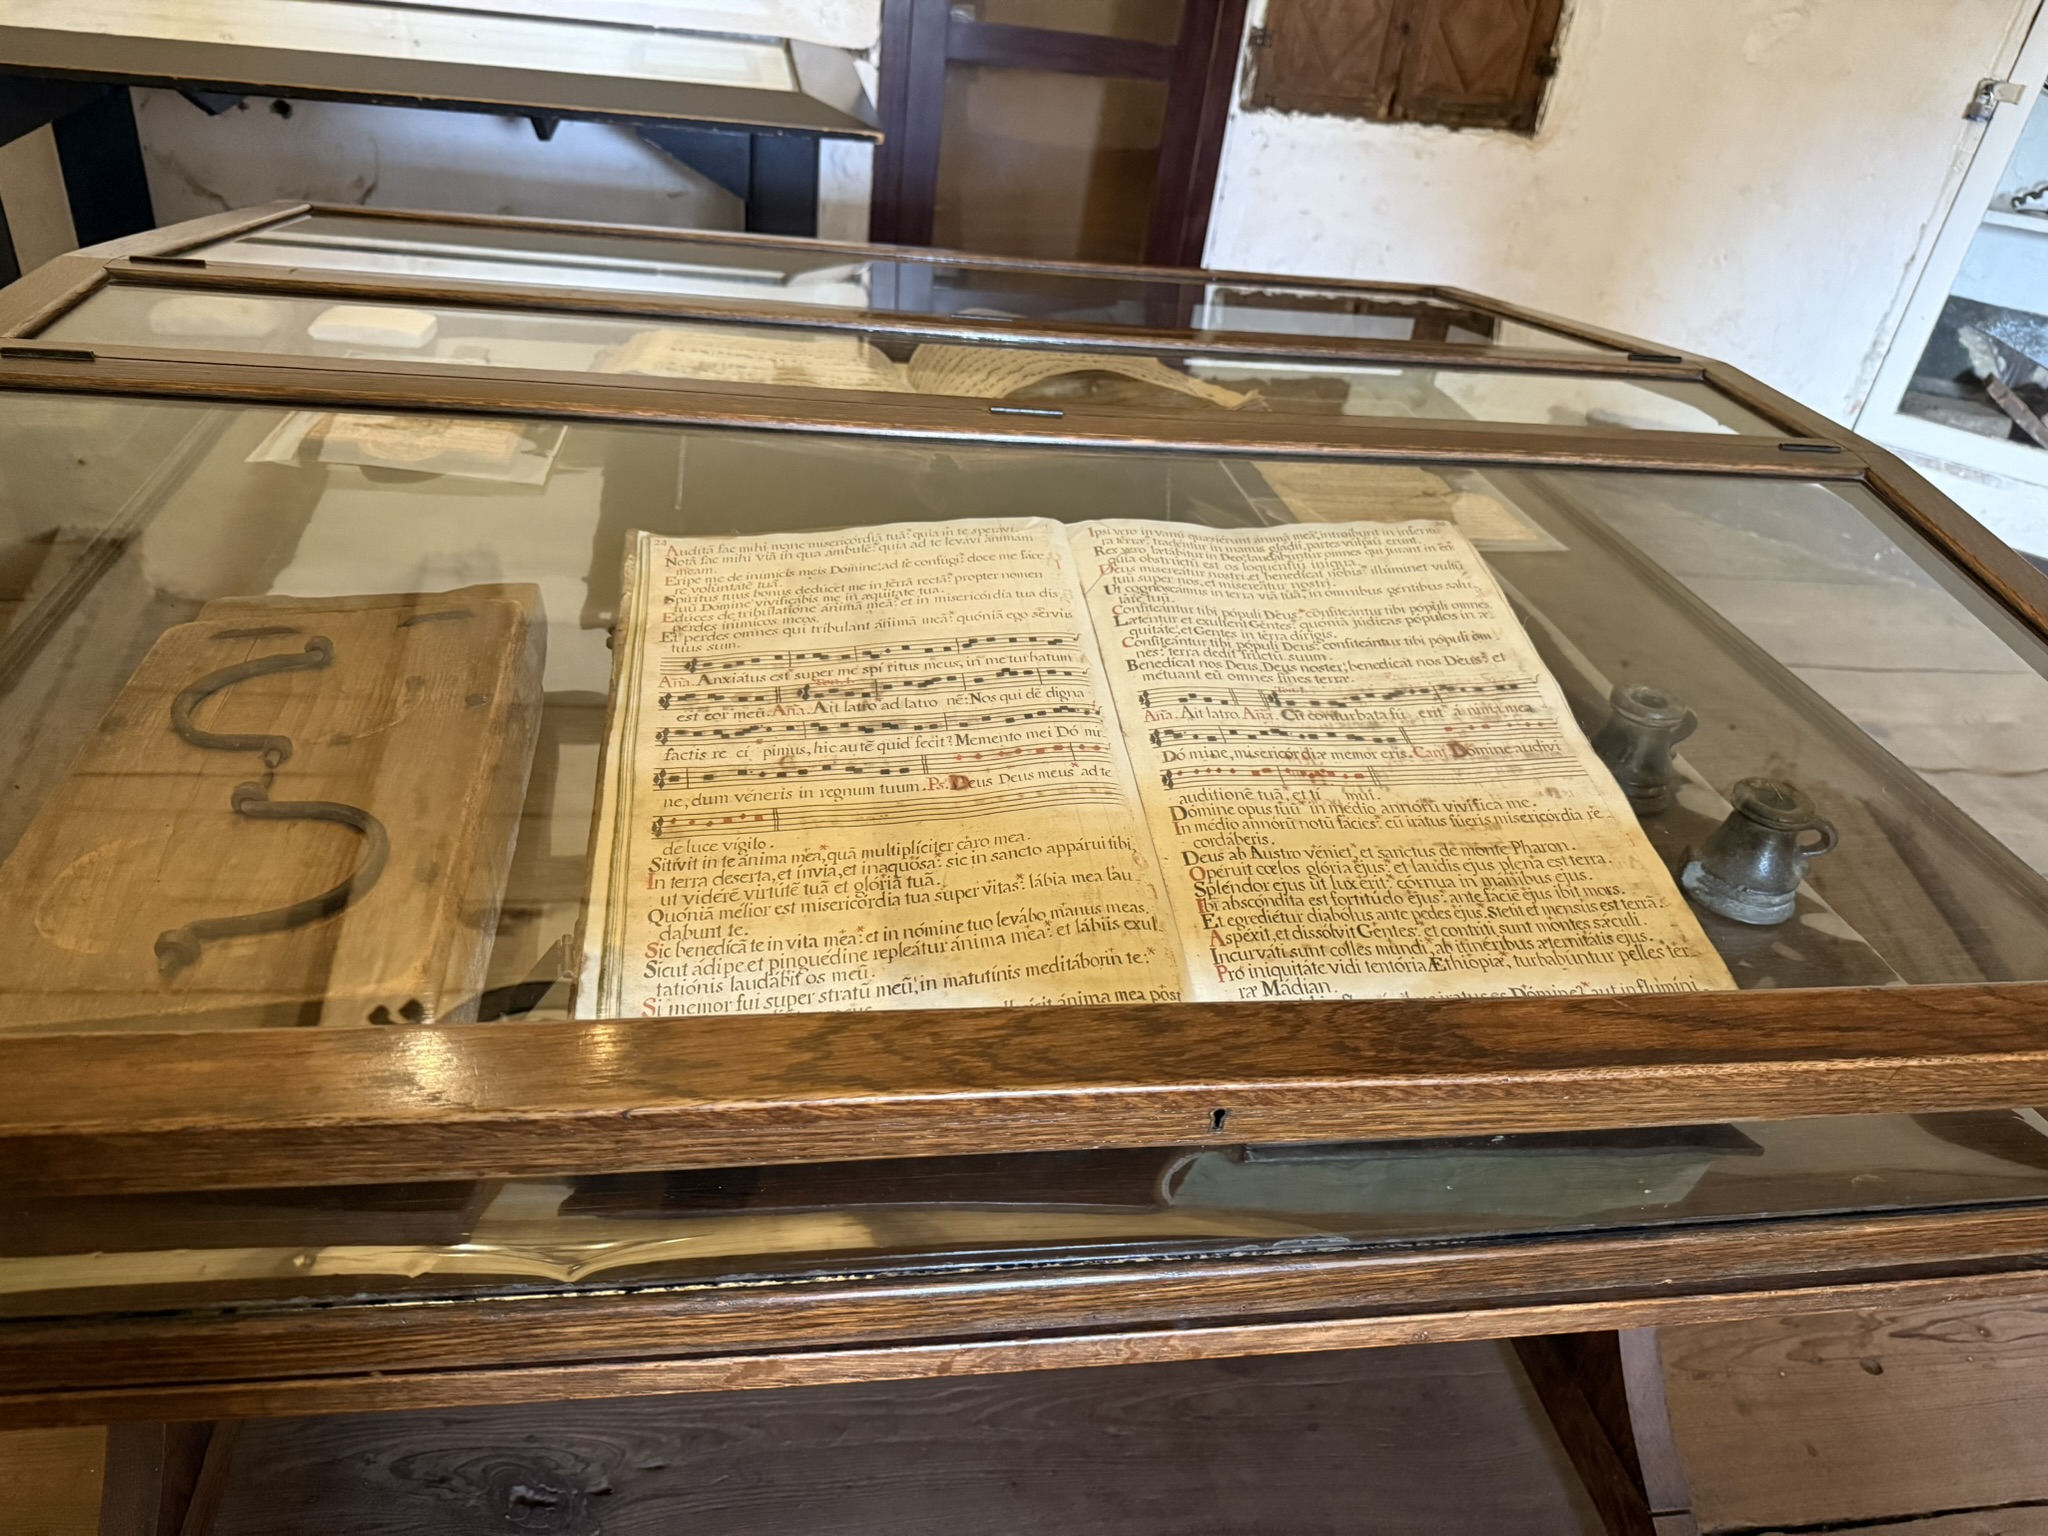 24
Auditā fac mihi mane misericordiā tuā: quia in te speravi.
Notā fac mihi viā in qua ambulē: quia ad te levavi animam
meam.
Eripe me de inimicis meis Dómine, ad te confugi: doce me face
re voluntatē tuā.
Spiritus tuus bonus deducet me in tērrā rectā: propter nomen
tuū Domine vivificabis me in æquitate tua.
Educes de tribulatione ánimā meā: et in misericórdia tua dis
perdes inimicos meos.
Et perdes omnes qui tribulant ánimā meā: quóniā ego servus
tuus sum.
Aña. Anxiatus est super me spi ritus meus, in me turbatum
est cor meū. Aña. Ait latro ad latro nē: Nos qui dē digna
factis re ci pimus, hic autē quid fecit? Memento mei Dó mi
ne, dum véneris in regnum tuum. Ps. Deus Deus meus* ad te
de luce vígilo.
Sitívit in te ánima mea,* quā multiplíciter cáro mea.
In terra deserta, et ínvia, et inaquósa: sic in sancto appárui tibi,
ut vidérē virtútē tuā et glóriā tuā.
Quoniā mélior est misericórdia tua super vitas: lábia mea lau
dabunt te.
Sic benedícā te in vita mea: et in nómine tuo levábo manus meas.
Sicut ádipe et pinguédine repleátur ánima mea: et lábiis exul
tatiónis laudábit os meū.
Si memor fui super stratū meū, in matutínis meditábor in te:*
ánima mea póst
Ipsi vero in vanū quæsiérunt ánimā meā, introibunt in inferió
ra terræ: tradentur in manus gládii, partes vulpiū erunt.
Rex vero lætábitur in Deo, laudabuntur omnes qui jurant in eo:
quia obstructū est os loquentiū iniqua.
Deus misereátur nostri, et benedícat nobis: illúminet vultū
tuū super nos, et misereátur nostri.
Ut cognoscámus in terra viā tuā: in ómnibus géntibus salu
táre tuū.
Confiteántur tibi pópuli Deus: confiteántur tibi pópuli omnes.
Lætentur et exultent Gentes: quóniā júdicas pópulos in æ
quitáte, et Gentes in terra dírigis.
Confiteántur tibi pópuli Deus: confiteántur tibi pópuli óm
nes: terra dedit fructū suum.
Benedícat nos Deus, Deus noster, benedícat nos Deus: et
métuant eū omnes fines terræ.
Aña. Ait latro Aña. Cū conturbata fú erit á nima mea
Dó mine, misericórdiæ memor eris. Cant. Dómine audívi
auditiónē tuā, et tí mui.
Dómine opus tuū* in médio annórū vivífica me.
In médio annórū notū fácies: cū irátus fúeris misericórdiæ re
cordáberis.
Deus ab Austro véniet, et sanctus de monte Pharon.
Opéruit cœlos glória ejus: et laudis ejus plena est terra.
Spléndor ejus ut lux erit: córnua in mánibus ejus.
Ibi abscóndita est fortitúdo ejus: ante fáciē ejus ibit mors.
Et egrediétur diábolus ante pedes ejus. Stetit et mensus est terrā.
Aspéxit, et dissólvit Gentes: et contríti sunt montes sǽculi.
Incurváti sunt colles mundi, ab itinéribus æternitátis ejus.
Pro iniquitáte vidi tentória Æthiópiæ, turbabúntur pelles ter
ræ Mádian.
irátus es Dómine? aut in flumíni